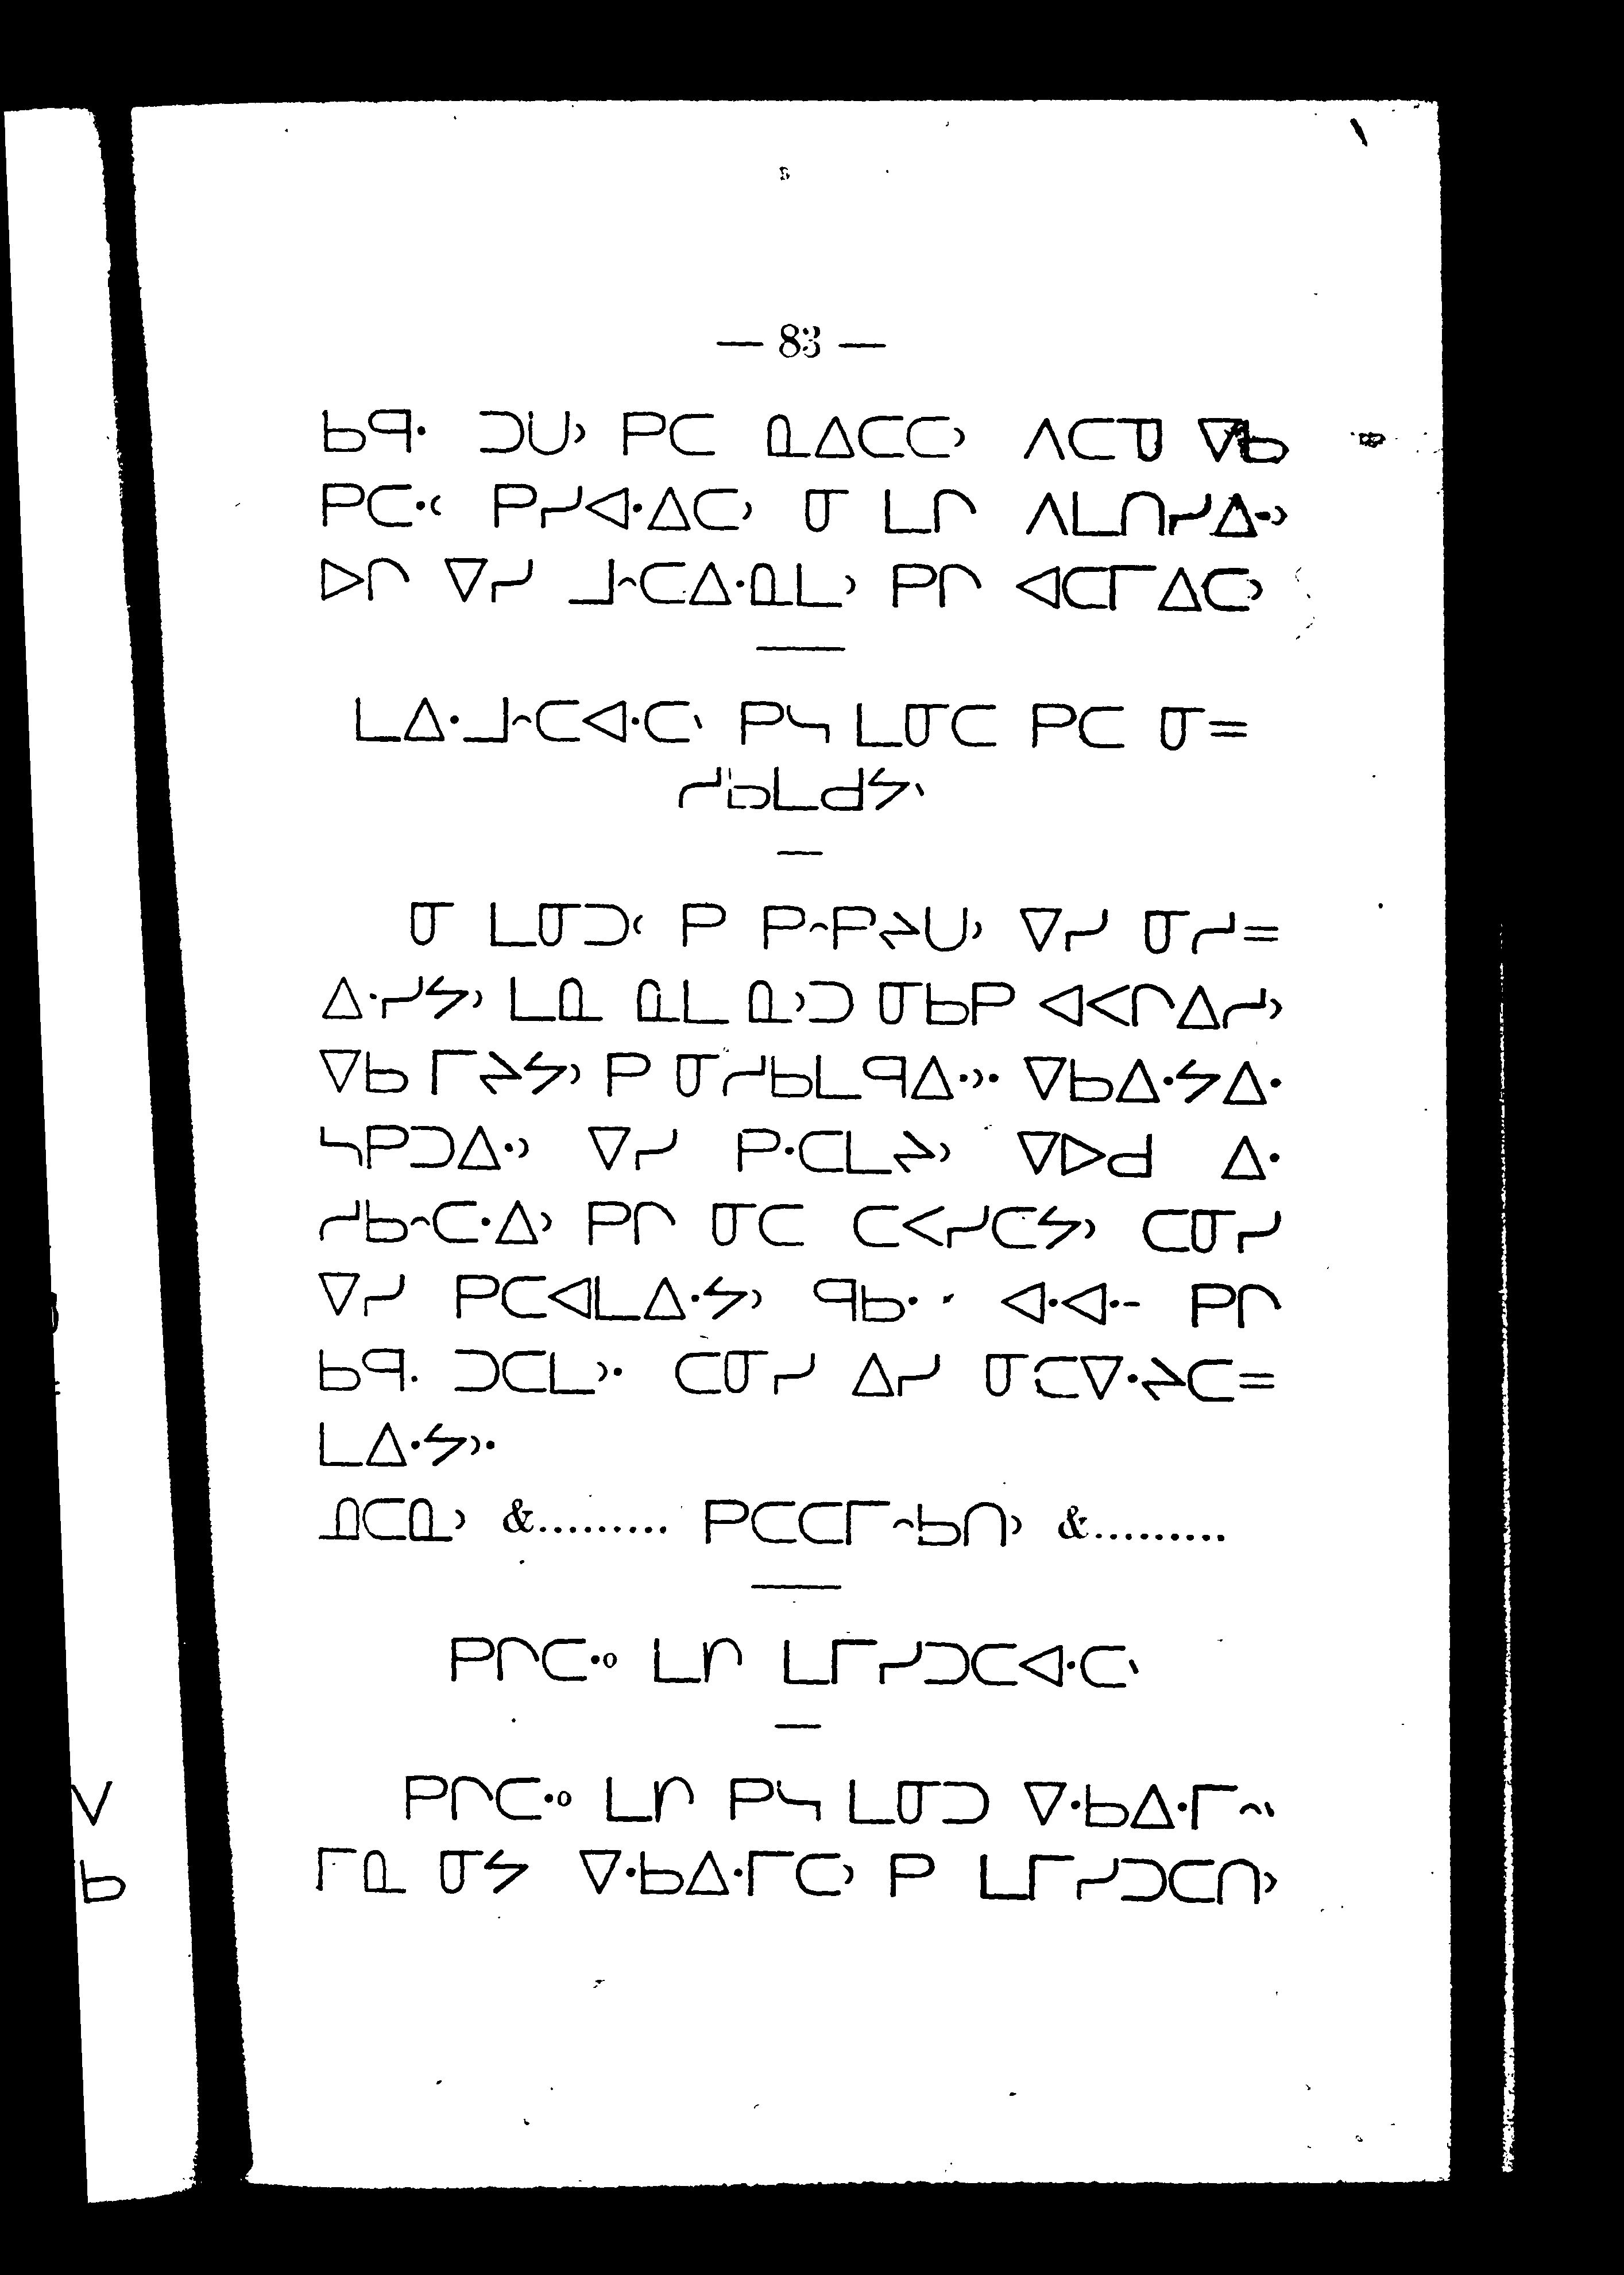 — 83 —
ᑲᑫᐧ ᑐᑌᐣ ᑭᑕ ᓇᐃᑕᑕᐣ ᐱᑕᓀ ᐁᑲ
ᑭᑕᐧᐸ ᑭᓯᐊᐧᐃᑕᐣ ᓂ ᒪᒋ ᐱᒪᑎᓯᐃᐧᐣ
ᐅᒋ ᐁᓯ ᒧᐢᑕᐃᐧᓇᒪᐣ ᑭᒋ ᐊᑕᒥᐃᑕᐣ
ᒪᐃᐧᒧᐢᑕᐊᐧᑕᐠ ᑭᓴ ᒪᓂᑕ ᑭᑕ ᓂ=
ᓱᑲᒪᑯᔭᐠ
ᓂ ᒪᓂᑐᑦ ᑭ ᑭᐢᑭᔦᑌᐣ ᐁᓯ ᓂᓱ=
ᐃᐧᓯᔭᐣ ᒪᓇ ᓇᒪ ᓇᐣᑐ ᓂᑲᑭ ᐊᐸᒋᐃᓱᐣ
ᐁᑲ ᒥᔦᔭᐣ ᑭ ᓂᓱᑲᒪᑫᐃᐧᐣ᙮ ᐁᑲᐃᐧᔭᐃᐧ
ᓴᑭᑐᐃᐧᐣ ᐁᓯ ᑭᐧᑕᒪᔦᐣ ᐁᐅᑯ ᐃᐧ
ᓱᑲᐢᑕᐧᐃᐣ ᑭᒋ ᓂᑕ ᑕᐸᓯᑕᔭᐣ ᑕᓂᓯ
ᐁᓯ ᑭᑕᐊᒪᐃᐧᔭᐣ ᑫᑲᐧ ᐊᐧᐊᐧᐨ ᑭᒋ
ᑲᑫᐧ ᑐᑕᒪᐣ᙮ ᑕᓂᓯ ᐃᓯ ᓂᑕᐁᐧᔦᑕ=
ᒪᐃᐧᔭᐣ᙮
ᓇᑕᓇᐣ &......... ᑭᑕᑕᒥᐢᑲᑎᐣ &.........
ᑭᒋᑕᐧᐤ ᒪᒋ ᒪᒥᓯᑐᑕᐊᐧᑕᐠ
ᑭᒋᑕᐧᐤ ᒪᒋ ᑭᓴ ᒪᓂᑐ ᐁᐧᑲᐃᐧᒥᐢᐠ
ᒥᓇ ᓂᔭ ᐁᐧᑲᐃᐧᒥᑕᐣ ᑭ ᒪᒥᓯᑐᑕᑎᐣ